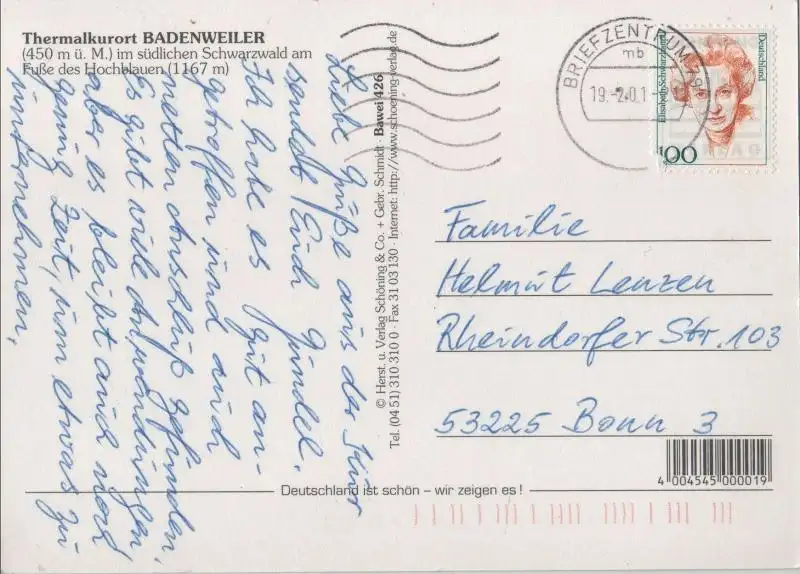 Thermalkurort BADENWEILER
(450 m ü. M.) im südlichen Schwarzwald am
Fuße des Hochblauen (1167 m)
Liebe Grüße aus der Kur
sendet Euch Gundel.
Ich habe es gut an-
getroffen und auch
netten Anschluß gefunden,
Es gibt viele Anwendungen,
aber es bleibt auch noch
genug Zeit, um etwas zu
unternehmen,
© Herst. u. Verlag Schöning & Co. + Gebr. Schmidt · Bawei 426
Tel. (04 51) 310 310 0 · Fax 31 03 130 · Internet: http://www.schoening-verlag.de
BRIEFZENTRUM 79
mb
19.-2.01
Elisabeth Schwarzhaupt
Deutschland
100
Familie
Helmut Lenzen
Rheindorfer Str. 103
53225 Bonn 3
4 004545 000019
Deutschland ist schön – wir zeigen es!